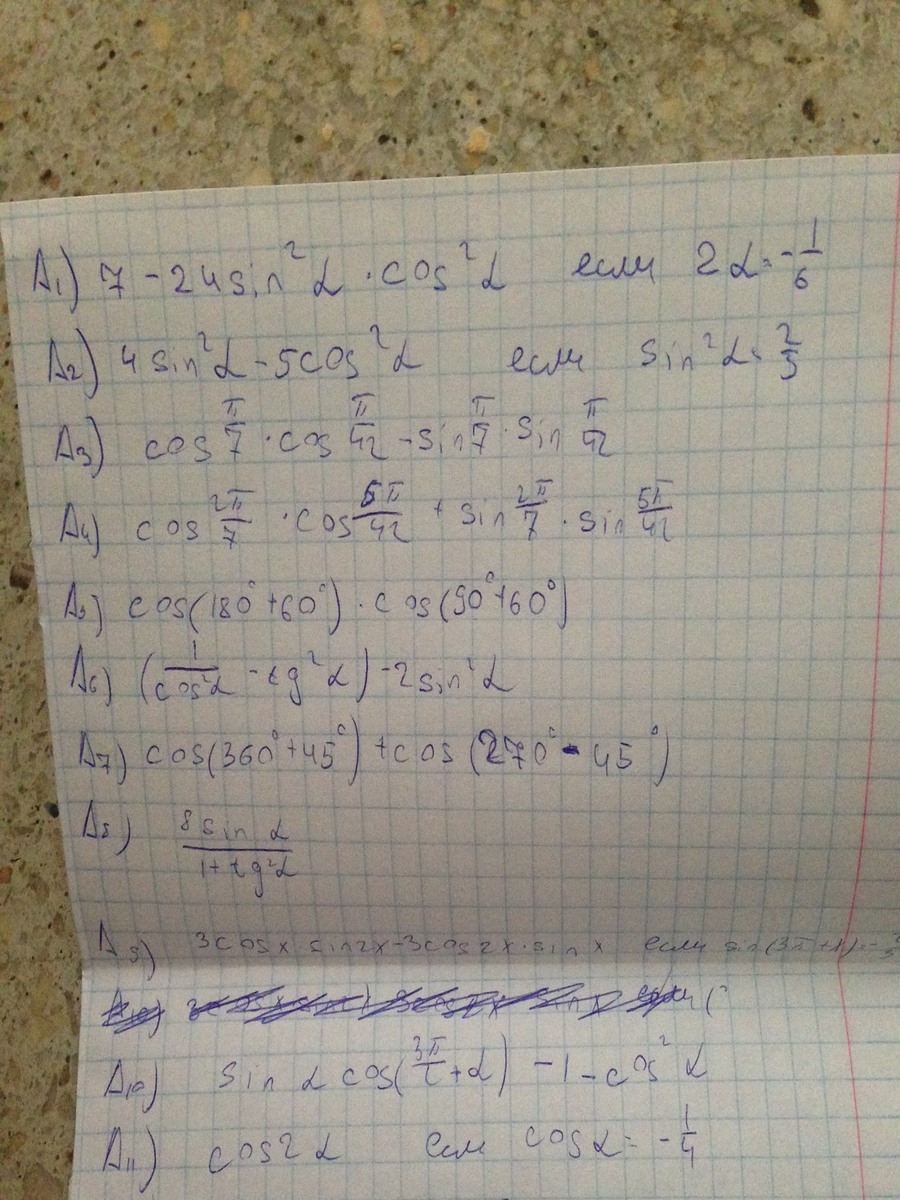 A₁) 7 - 24 sin²α · cos²α если 2α = -1/6
A₂) 4 sin²α - 5cos²α если sin²α = 2/5
A₃) cos π/7 · cos π/42 - sin π/7 · sin π/42
A₄) cos 2π/7 · cos 5π/42 + sin 2π/7 · sin 5π/42
A₅) cos(180° + 60°) · cos(90° + 60°)
A₆) (1/cos²α - tg²α) - 2 sin²α
A₇) cos(360° + 45°) + cos(270° - 45°)
A₈) 8 sin α / 1 + tg²α
A₉) 3cosx · sin2x - 3cos2x · sinx если
A₁₀) sin α cos( + α) - 1 - cos²α
A₁₁) cos2α если cosα = -1/4